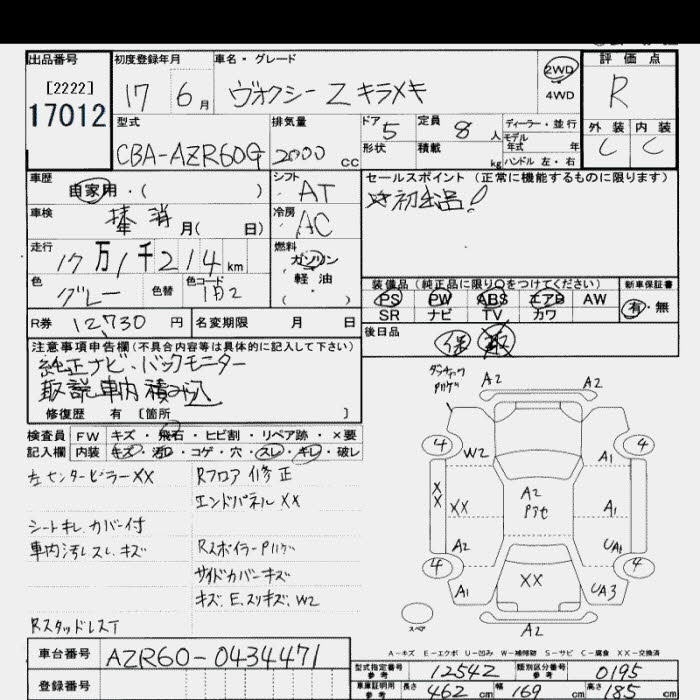 出品番号
[2222]
17012
初度登録年月
17 6 月
車名・グレード
ヴォクシー Z キラメキ
2WD
4WD
評価点
R
外装 内装
C C
型式
CBA-AZR60G
排気量
2000 cc
ドア 5
定員 8 人
形状
積載 kg
ディーラー・並行
モデル年式 年
ハンドル 左・右
車歴
自家用・( )
車検
抹消 月( 日)
シフト
AT
冷房
AC
走行
17万1千214 km
燃料
ガソリン
軽油
( )
色
グレー
色替
色コード
1F2
セールスポイント (正常に機能するものに限ります)
☆初出品!
装備品(純正品に限り○をつけてください)
PS PW ABS エアB AW
SR ナビ TV カワ
新車保証書
有・無
R券 12,730 円
名変期限 月 日
後日品
保 取
注意事項申告欄(不具合内容等は具体的に記入して下さい)
純正ナビ・バックモニター
取説車内積み込
修復歴 有 [箇所 ]
検査員記入欄
FW キズ・飛石・ヒビ割・リペア跡・×要
内装 キズ・汚レ・コゲ・穴・スレ・キレ・破レ
左センターピラーXX
シートキレ、カバー付
車内汚レスレ、キズ
RスタッドレスT
Rフロア修正
エンドパネルXX
Rスポイラー
サイドカバーキズ
キズ、E、スリキズ、W2
A2 A2
4 4
W2 A1
XX XX A2 A1
A2 UA1
4 4
A1 XX UA3
A2
スペア
A-キズ E-エクボ U-凹み W-補修跡 S-サビ C-腐食 XX-交換済
車台番号
AZR60-0434471
登録番号
型式指定番号 参考 12542
類別区分番号 参考 0195
車庫証明用 参考 長さ 462 cm 幅 169 cm 高さ 185 cm